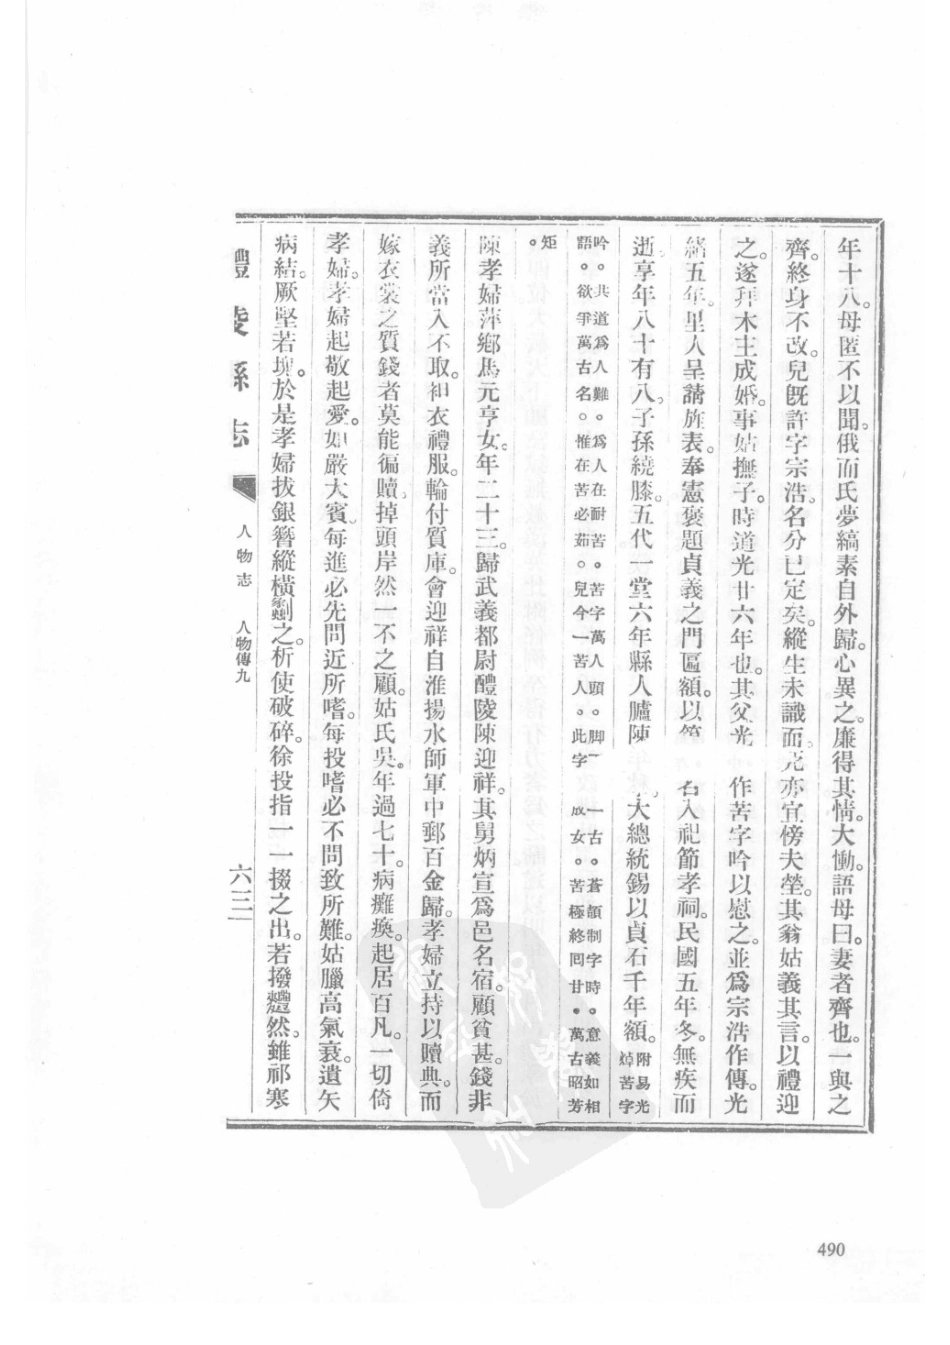 年十八。母匿不以聞。俄而氏夢縞素自外歸。心異之。廉得其情。大慟。語母曰。妻者齊也。一與之
齊。終身不改。兒既許字宗浩。名分已定矣。縱生未識面。死亦宜傍夫塋。其翁姑義其言。以禮迎
之。遂拜木主成婚。事姑撫子。時道光廿六年也。其父光 作苦字吟以慰之。並爲宗浩作傳。光
緒五年。里人呈請旌表。奉憲褒題貞義之門匾額。以 名入祀節孝祠。民國五年冬。無疾而
逝。享年八十有八。子孫繞膝。五代一堂。六年縣人臚陳 大總統錫以貞石千年額。附易光
焯苦字
吟。共道爲人難。爲人在耐苦。苦字萬人頭。脚 一古。蒼頡制字時。意義如相
語。欲爭萬古名。惟在苦必茹。兒今一苦人。此字 放女。苦極終回甘。萬古昭芳
矩。
陳孝婦萍鄉馬元亨女。年二十三。歸武義都尉醴陵陳迎祥。其舅炳宣爲邑名宿。顧貧甚。錢非
義所當入不取。袒衣禮服。輪付質庫。會迎祥自淮揚水師軍中郵百金歸。孝婦立持以贖典。而
嫁衣裳之質錢者莫能徧贖。掉頭岸然一不之顧。姑氏吳。年過七十。病癱瘓。起居百凡。一切倚
孝婦。孝婦起敬起愛。如嚴大賓。每進必先問近所嗜。每投嗜必不問致所難。姑臘高氣衰。遺矢
病結。厥堅若塊。於是孝婦拔銀簪縱橫劙之。析使破碎。徐投指一一掇之出。若撥爐然。雖祁寒
醴陵縣志
人物志 人物傳九
六三
490